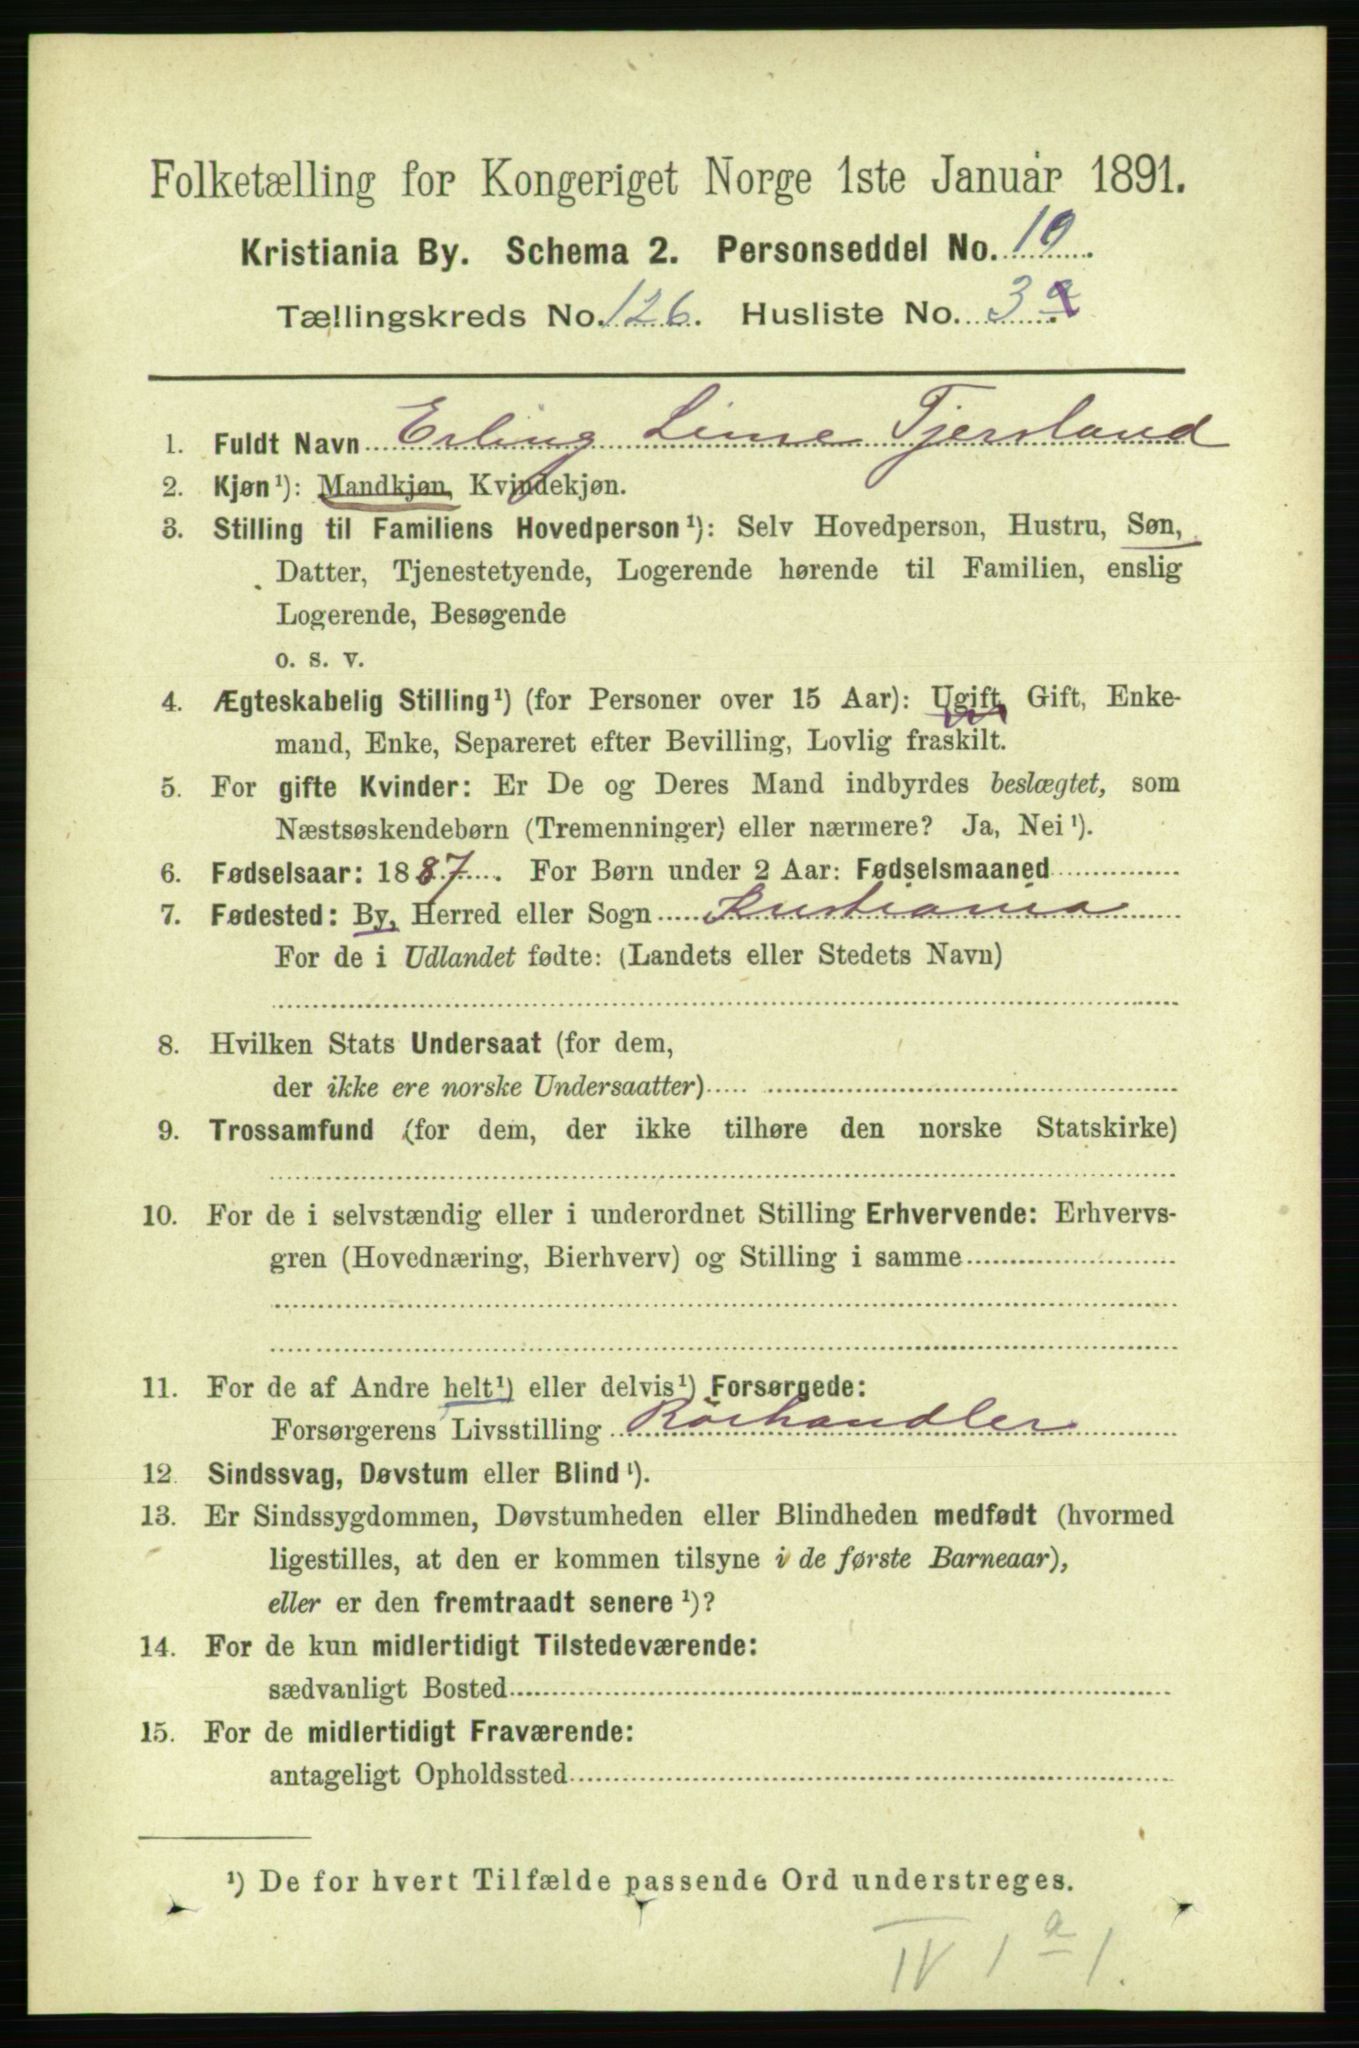 Folketælling for Kongeriget Norge 1ste Januar 1891.
Kristiania By. Schema 2. Personseddel No. 10.
Tællingskreds No. 126. Husliste No. 3 a
1. Fuldt Navn Erling Linse Tjersland
2. Kjøn¹): Mandkjøn, Kvindekjøn.
3. Stilling til Familiens Hovedperson¹): Selv Hovedperson, Hustru, Søn,
Datter, Tjenestetyende, Logerende hørende til Familien, enslig
Logerende, Besøgende
o. s. v.
4. Ægteskabelig Stilling¹) (for Personer over 15 Aar): Ugift, Gift, Enke-
mand, Enke, Separeret efter Bevilling, Lovlig fraskilt.
5. For gifte Kvinder: Er De og Deres Mand indbyrdes beslægtet, som
Næstsøskendebørn (Tremenninger) eller nærmere? Ja, Nei¹).
6. Fødselsaar: 1887. For Børn under 2 Aar: Fødselsmaaned
7. Fødested: By, Herred eller Sogn Kristiania
For de i Udlandet fødte: (Landets eller Stedets Navn)
8. Hvilken Stats Undersaat (for dem,
der ikke ere norske Undersaatter)
9. Trossamfund (for dem, der ikke tilhøre den norske Statskirke)
10. For de i selvstændig eller i underordnet Stilling Erhvervende: Erhvervs-
gren (Hovednæring, Bierhverv) og Stilling i samme
11. For de af Andre helt¹) eller delvis¹) Forsørgede:
Forsørgerens Livsstilling Rörhandler
12. Sindssvag, Døvstum eller Blind¹).
13. Er Sindssygdommen, Døvstumheden eller Blindheden medfødt (hvormed
ligestilles, at den er kommen tilsyne i de første Barneaar),
eller er den fremtraadt senere¹)?
14. For de kun midlertidigt Tilstedeværende:
sædvanligt Bosted
15. For de midlertidigt Fraværende:
antageligt Opholdssted
¹) De for hvert Tilfælde passende Ord understreges.
IV 1 a 1.